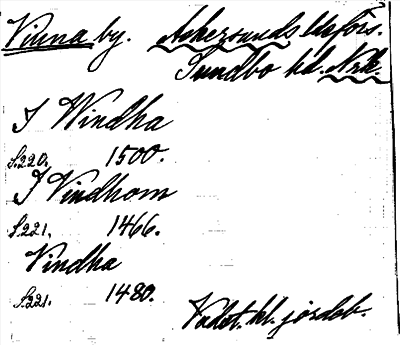 Vinna by. Askersunds ldsförs.
Sundbo hd. Nrk.
I Windha
S.220. 1500.
I Vindhom
S.221. 1466.
Vindha
S.221. 1480.
Vadst. kl. jordeb.